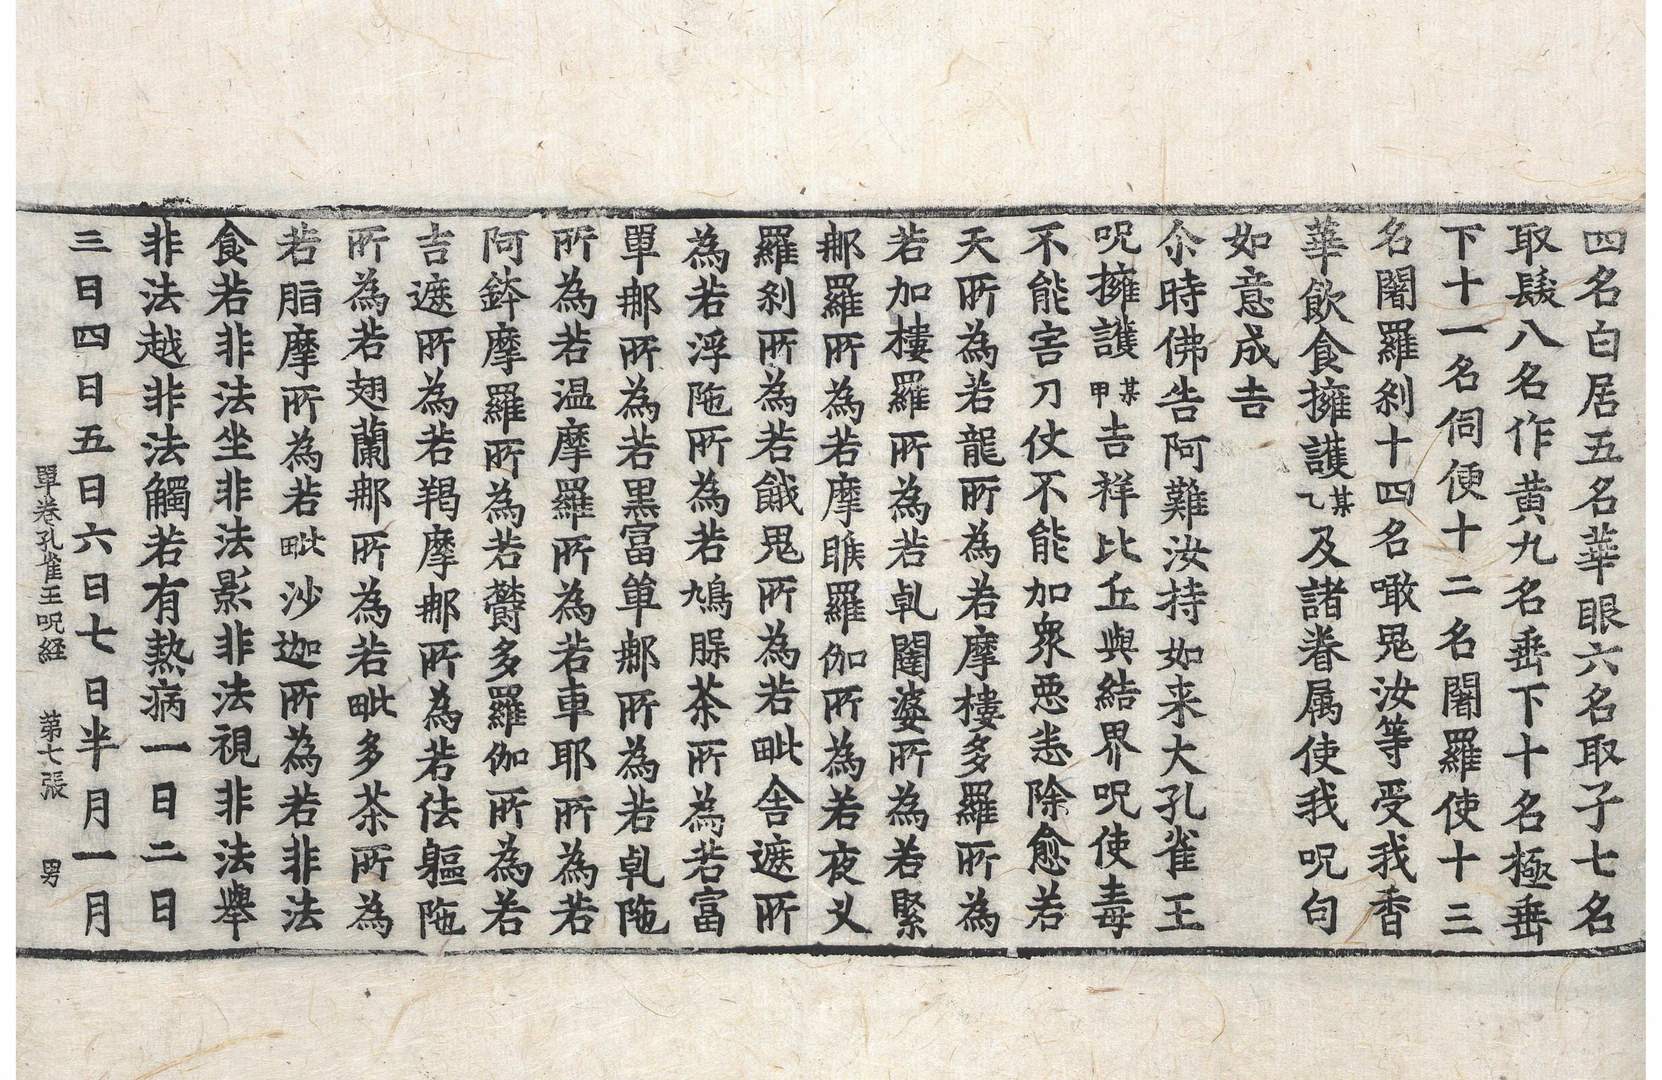 四名白居五名華眼六名取子七名
取髮八名作黄九名垂下十名極垂
下十一名伺便十二名闍羅使十三
名闍羅刹十四名噉鬼汝等受我香
華飲食擁護某乙及諸眷属使我呪句
如意成吉
尒時佛告阿難汝持如来大孔雀王
呪擁護某甲吉祥比丘與結界呪使毒
不能害刀仗不能加衆惡悉除愈若
天所為若龍所為若摩樓多羅所為
若加樓羅所為若乹闥婆所為若緊
那羅所為若摩睺羅伽所為若夜叉
羅刹所為若餓鬼所為若毗舎遮所
為若浮陁所為若鳩腺茶所為若富
單那所為若黒富單那所為若乹陁
所為若温摩羅所為若車耶所為若
阿鉢摩羅所為若欝多羅伽所為若
吉遮所為若羯摩那所為若佉軀陁
所為若翅蘭那所為若毗多茶所為
若脂摩所為若毗沙迦所為若非法
食若非法坐非法影非法視非法舉
非法越非法觸若有熱病一日二日
三日四日五日六日七日半月一月
單卷孔雀王呪経 第七張 男